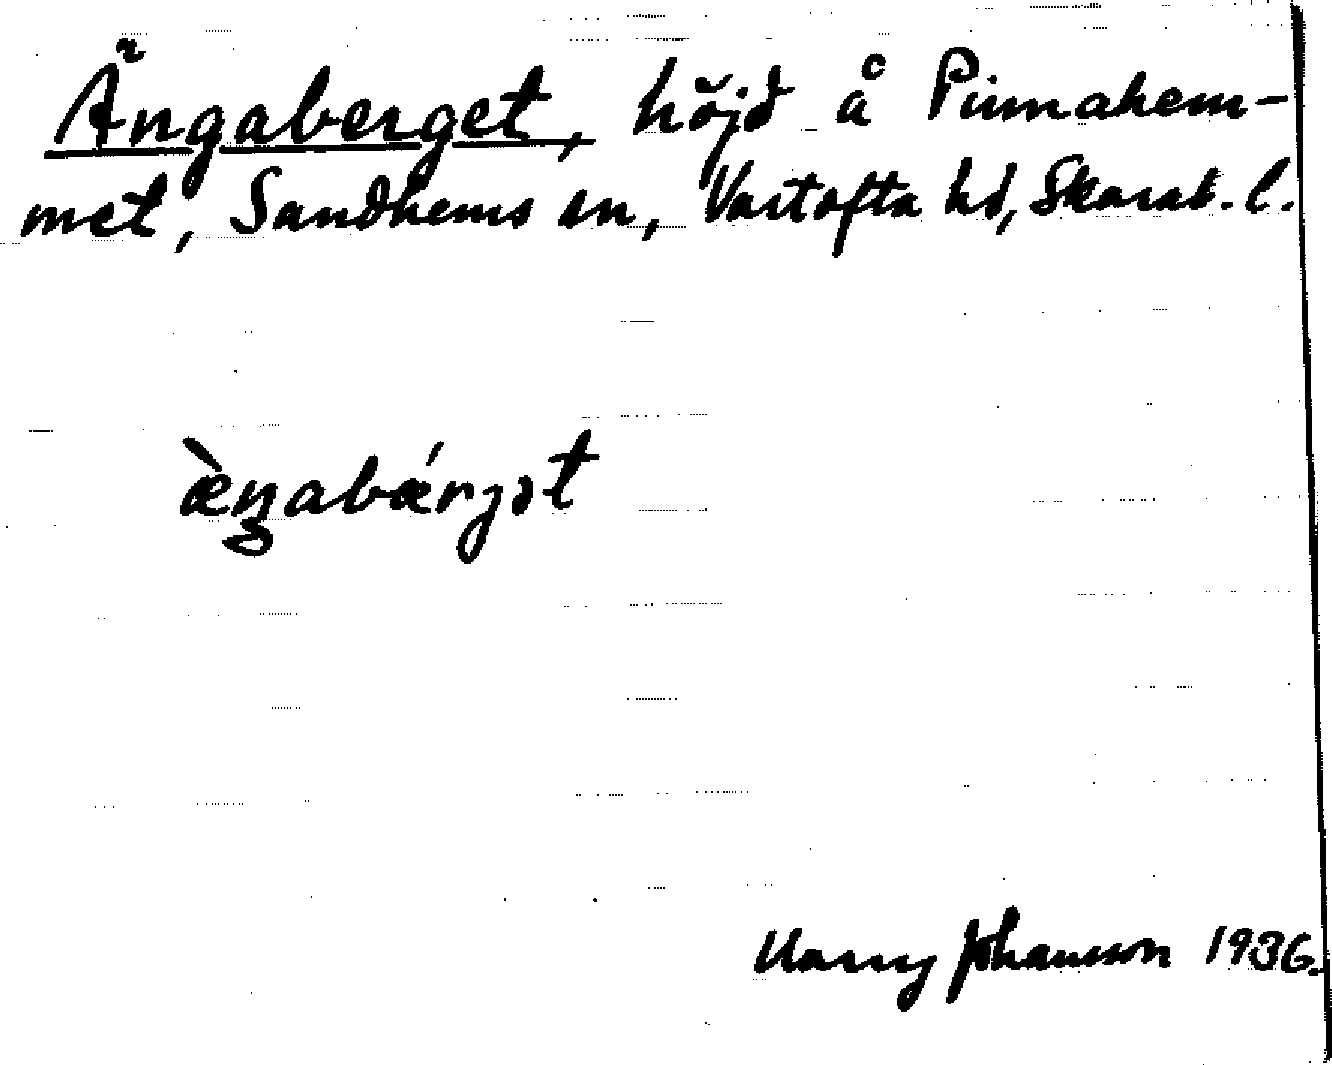 Ängaberget, höjd å Pinnahem-
met, Sandhems sn, Vartofta hd, Skarab. l.
æ̀ŋabǽrjət
Harry Johansson 1936.